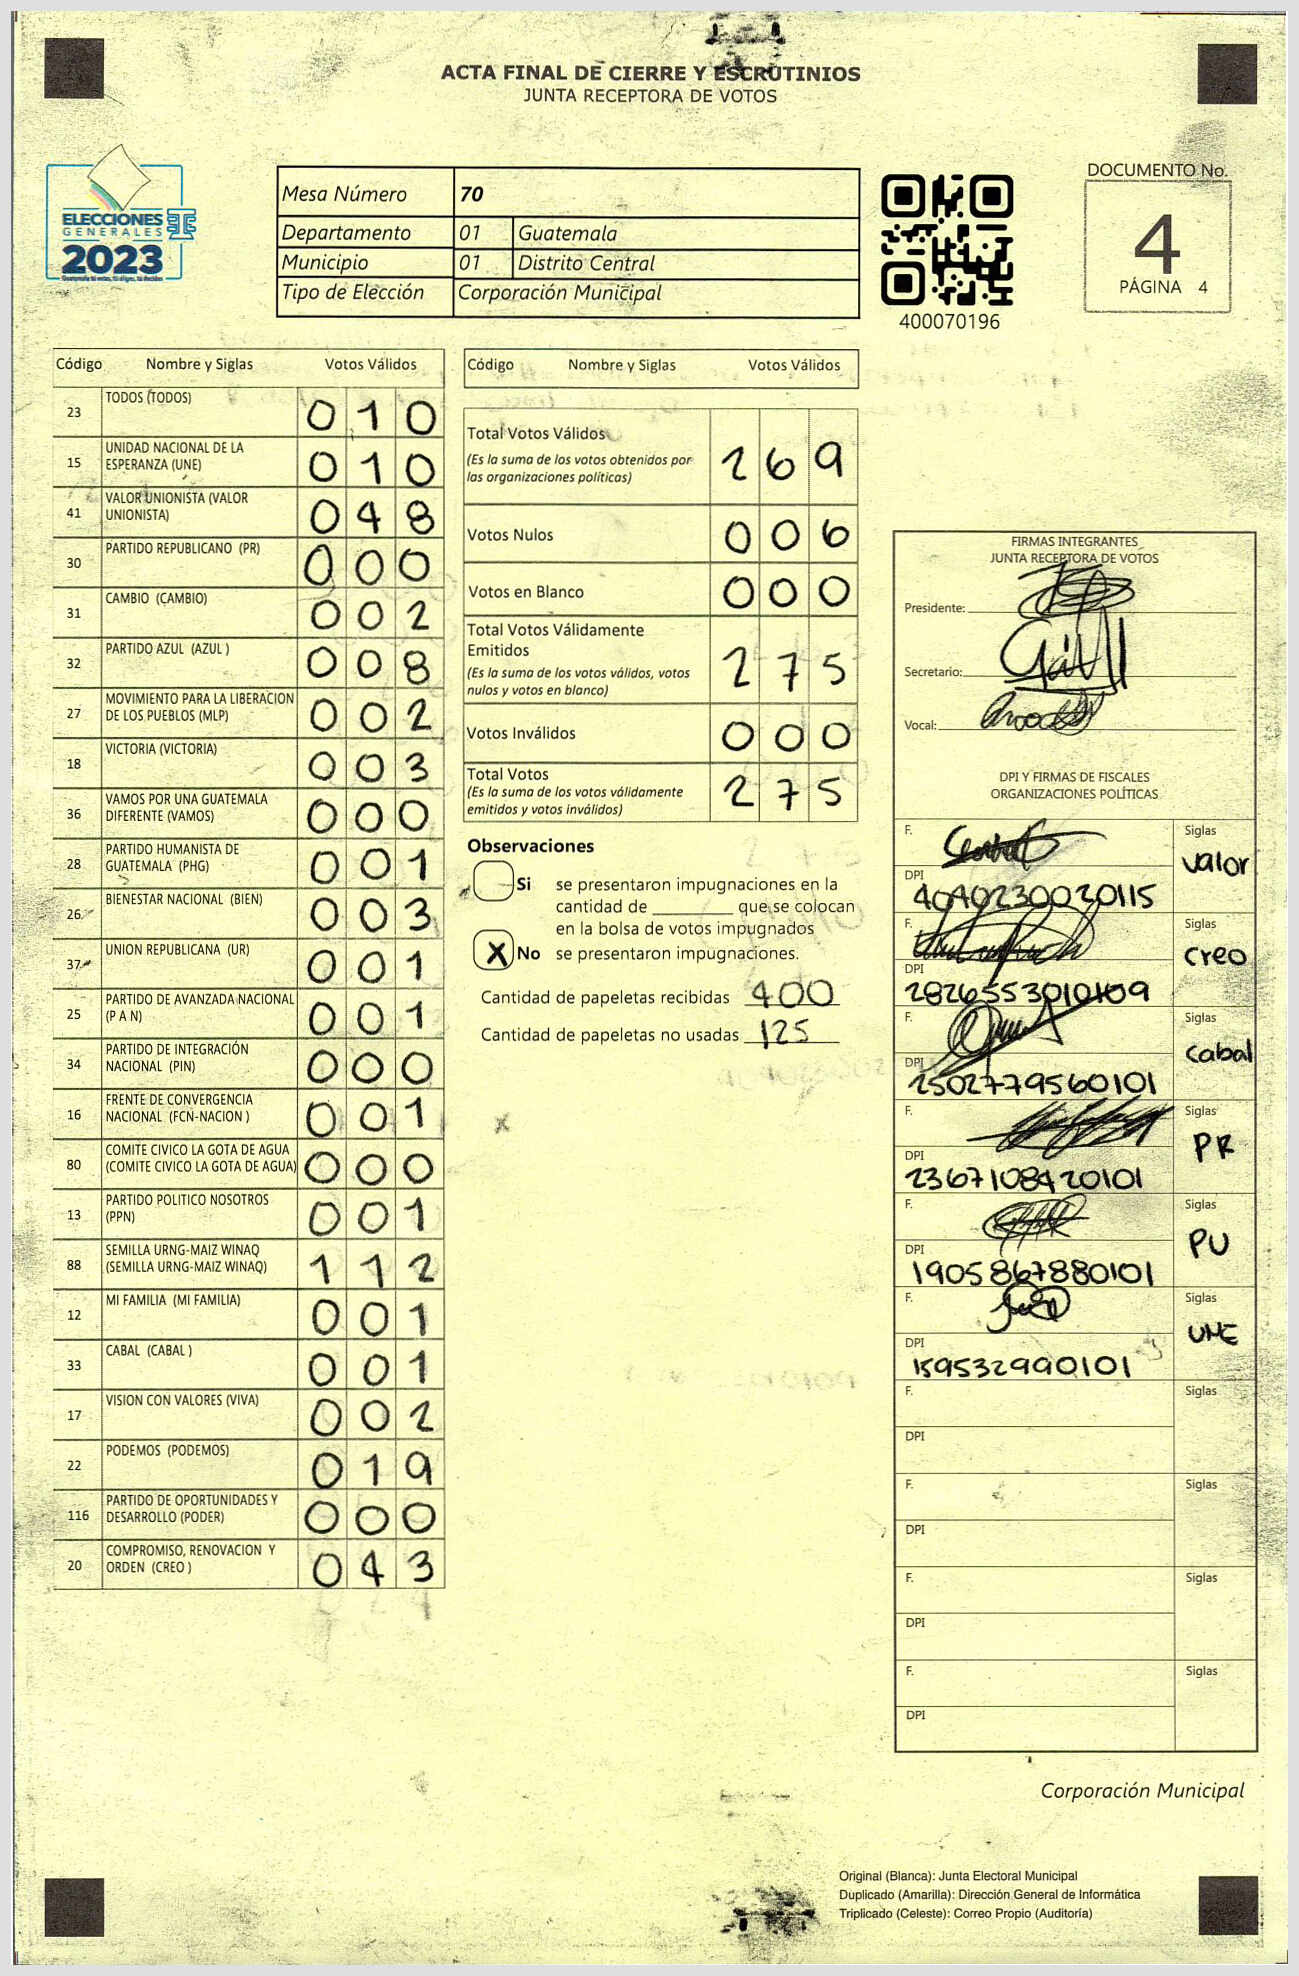 ACTA FINAL DE CIERRE Y ESCRUTINIOS
JUNTA RECEPTORA DE VOTOS
ELECCIONES
GENERALES
2023
Mesa Número 70
Departamento 01 Guatemala
Municipio 01 Distrito Central
Tipo de Elección Corporación Municipal
400070196
DOCUMENTO No.
4
PÁGINA 4
Código Nombre y Siglas Votos Válidos
23 TODOS (TODOS) 0 1 0
15 UNIDAD NACIONAL DE LA
ESPERANZA (UNE) 0 1 0
41 VALOR UNIONISTA (VALOR
UNIONISTA) 0 4 8
30 PARTIDO REPUBLICANO (PR) 0 0 0
31 CAMBIO (CAMBIO) 0 0 2
32 PARTIDO AZUL (AZUL ) 0 0 8
27 MOVIMIENTO PARA LA LIBERACION
DE LOS PUEBLOS (MLP) 0 0 2
18 VICTORIA (VICTORIA) 0 0 3
36 VAMOS POR UNA GUATEMALA
DIFERENTE (VAMOS) 0 0 0
28 PARTIDO HUMANISTA DE
GUATEMALA (PHG) 0 0 1
26 BIENESTAR NACIONAL (BIEN) 0 0 3
37 UNION REPUBLICANA (UR) 0 0 1
25 PARTIDO DE AVANZADA NACIONAL
(P A N) 0 0 1
34 PARTIDO DE INTEGRACIÓN
NACIONAL (PIN) 0 0 0
16 FRENTE DE CONVERGENCIA
NACIONAL (FCN-NACION ) 0 0 1
80 COMITE CIVICO LA GOTA DE AGUA
(COMITE CIVICO LA GOTA DE AGUA) 0 0 0
13 PARTIDO POLITICO NOSOTROS
(PPN) 0 0 1
88 SEMILLA URNG-MAIZ WINAQ
(SEMILLA URNG-MAIZ WINAQ) 1 1 2
12 MI FAMILIA (MI FAMILIA) 0 0 1
33 CABAL (CABAL ) 0 0 1
17 VISION CON VALORES (VIVA) 0 0 2
22 PODEMOS (PODEMOS) 0 1 9
116 PARTIDO DE OPORTUNIDADES Y
DESARROLLO (PODER) 0 0 0
20 COMPROMISO, RENOVACION Y
ORDEN (CREO ) 0 4 3
Código Nombre y Siglas Votos Válidos
Total Votos Válidos
(Es la suma de los votos obtenidos por
las organizaciones políticas) 2 6 9
Votos Nulos 0 0 6
Votos en Blanco 0 0 0
Total Votos Válidamente
Emitidos
(Es la suma de los votos válidos, votos
nulos y votos en blanco) 2 7 5
Votos Inválidos 0 0 0
Total Votos
(Es la suma de los votos válidamente
emitidos y votos inválidos) 2 7 5
Observaciones
Si se presentaron impugnaciones en la
cantidad de ________ que se colocan
en la bolsa de votos impugnados
X No se presentaron impugnaciones.
Cantidad de papeletas recibidas 400
Cantidad de papeletas no usadas 125
FIRMAS INTEGRANTES
JUNTA RECEPTORA DE VOTOS
Presidente:
Secretario:
Vocal:
DPI Y FIRMAS DE FISCALES
ORGANIZACIONES POLÍTICAS
F. Siglas
valor
DPI
4040230020115
F. Siglas
creo
DPI
2826553010109
F. Siglas
cabal
DPI
2502779560101
F. Siglas
PR
DPI
2367108420101
F. Siglas
PU
DPI
1905867880101
F. Siglas
UNE
DPI
159532990101
F. Siglas
DPI
F. Siglas
DPI
F. Siglas
DPI
F. Siglas
DPI
Corporación Municipal
Original (Blanca): Junta Electoral Municipal
Duplicado (Amarilla): Dirección General de Informática
Triplicado (Celeste): Correo Propio (Auditoría)